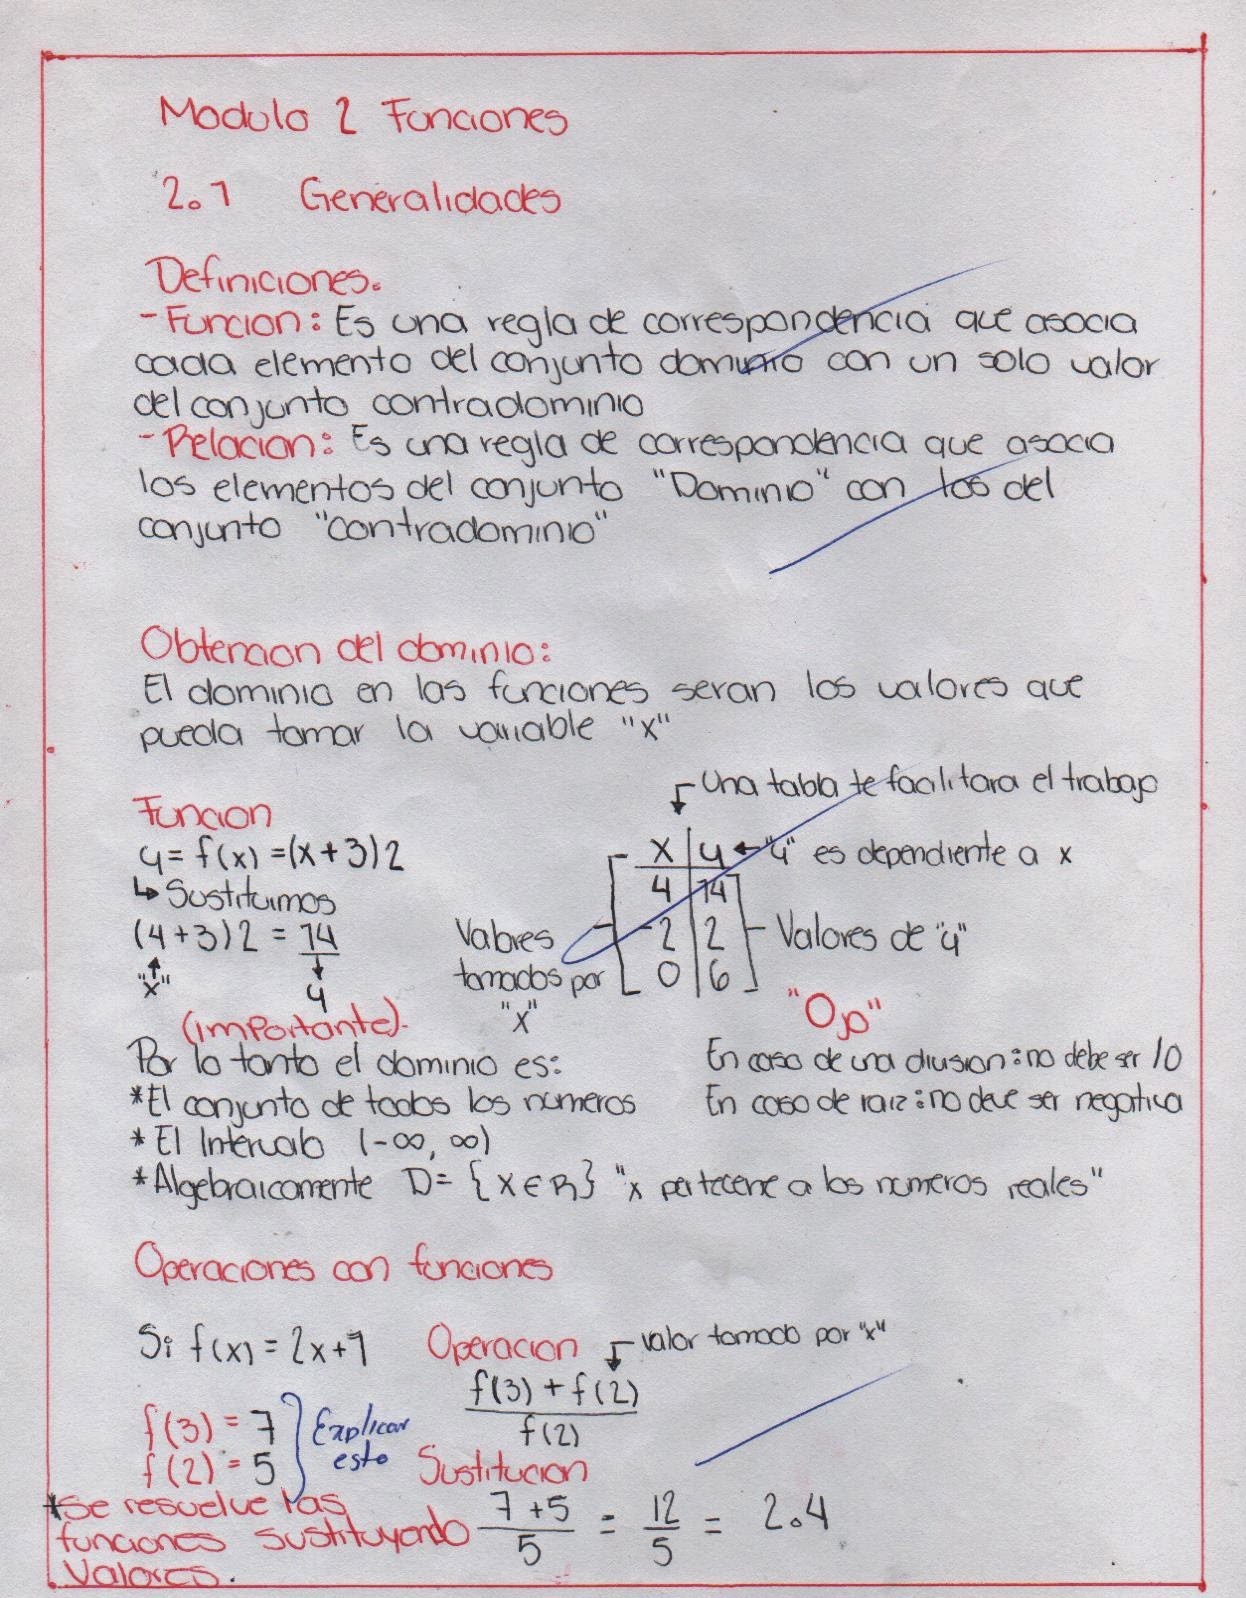 Modulo 2 Funciones
2.1 Generalidades
Definiciones.
- Funcion: Es una regla de correspondencia que asocia
cada elemento del conjunto dominio con un solo valor
del conjunto contradominio
- Relacion: Es una regla de correspondencia que asocia
los elementos del conjunto "Dominio" con los del
conjunto "contradominio"
Obtencion del dominio:
El dominio en las funciones seran los valores que
pueda tomar la variable "x"
Una tabla te facilitara el trabajo
Funcion
y = f(x) = (x+3)2
↳ Sustituimos
(4+3)2 = 14
"x"
y
x | y ← "y" es dependiente a x
4 | 14
-2 | 2
0 | 6
Valores
tomados por
"x"
Valores de "y"
(importante).
Por lo tanto el dominio es:
*El conjunto de todos los numeros
* El Intervalo (-∞, ∞)
*Algebraicamente D= {x∈R} "x pertecene a los numeros reales"
"Ojo"
En caso de una division: no debe ser /0
En caso de raiz: no deve ser negativa
Operaciones con funciones
Si f(x) = 2x+1
f(3) = 7
f(2) = 5
Explicar
esto
*Se resuelve las
funciones sustituyendo
Valores.
Operacion
valor tomado por "x"
f(3) + f(2)
f(2)
Sustitucion
7+5 = 12 = 2.4
5 5